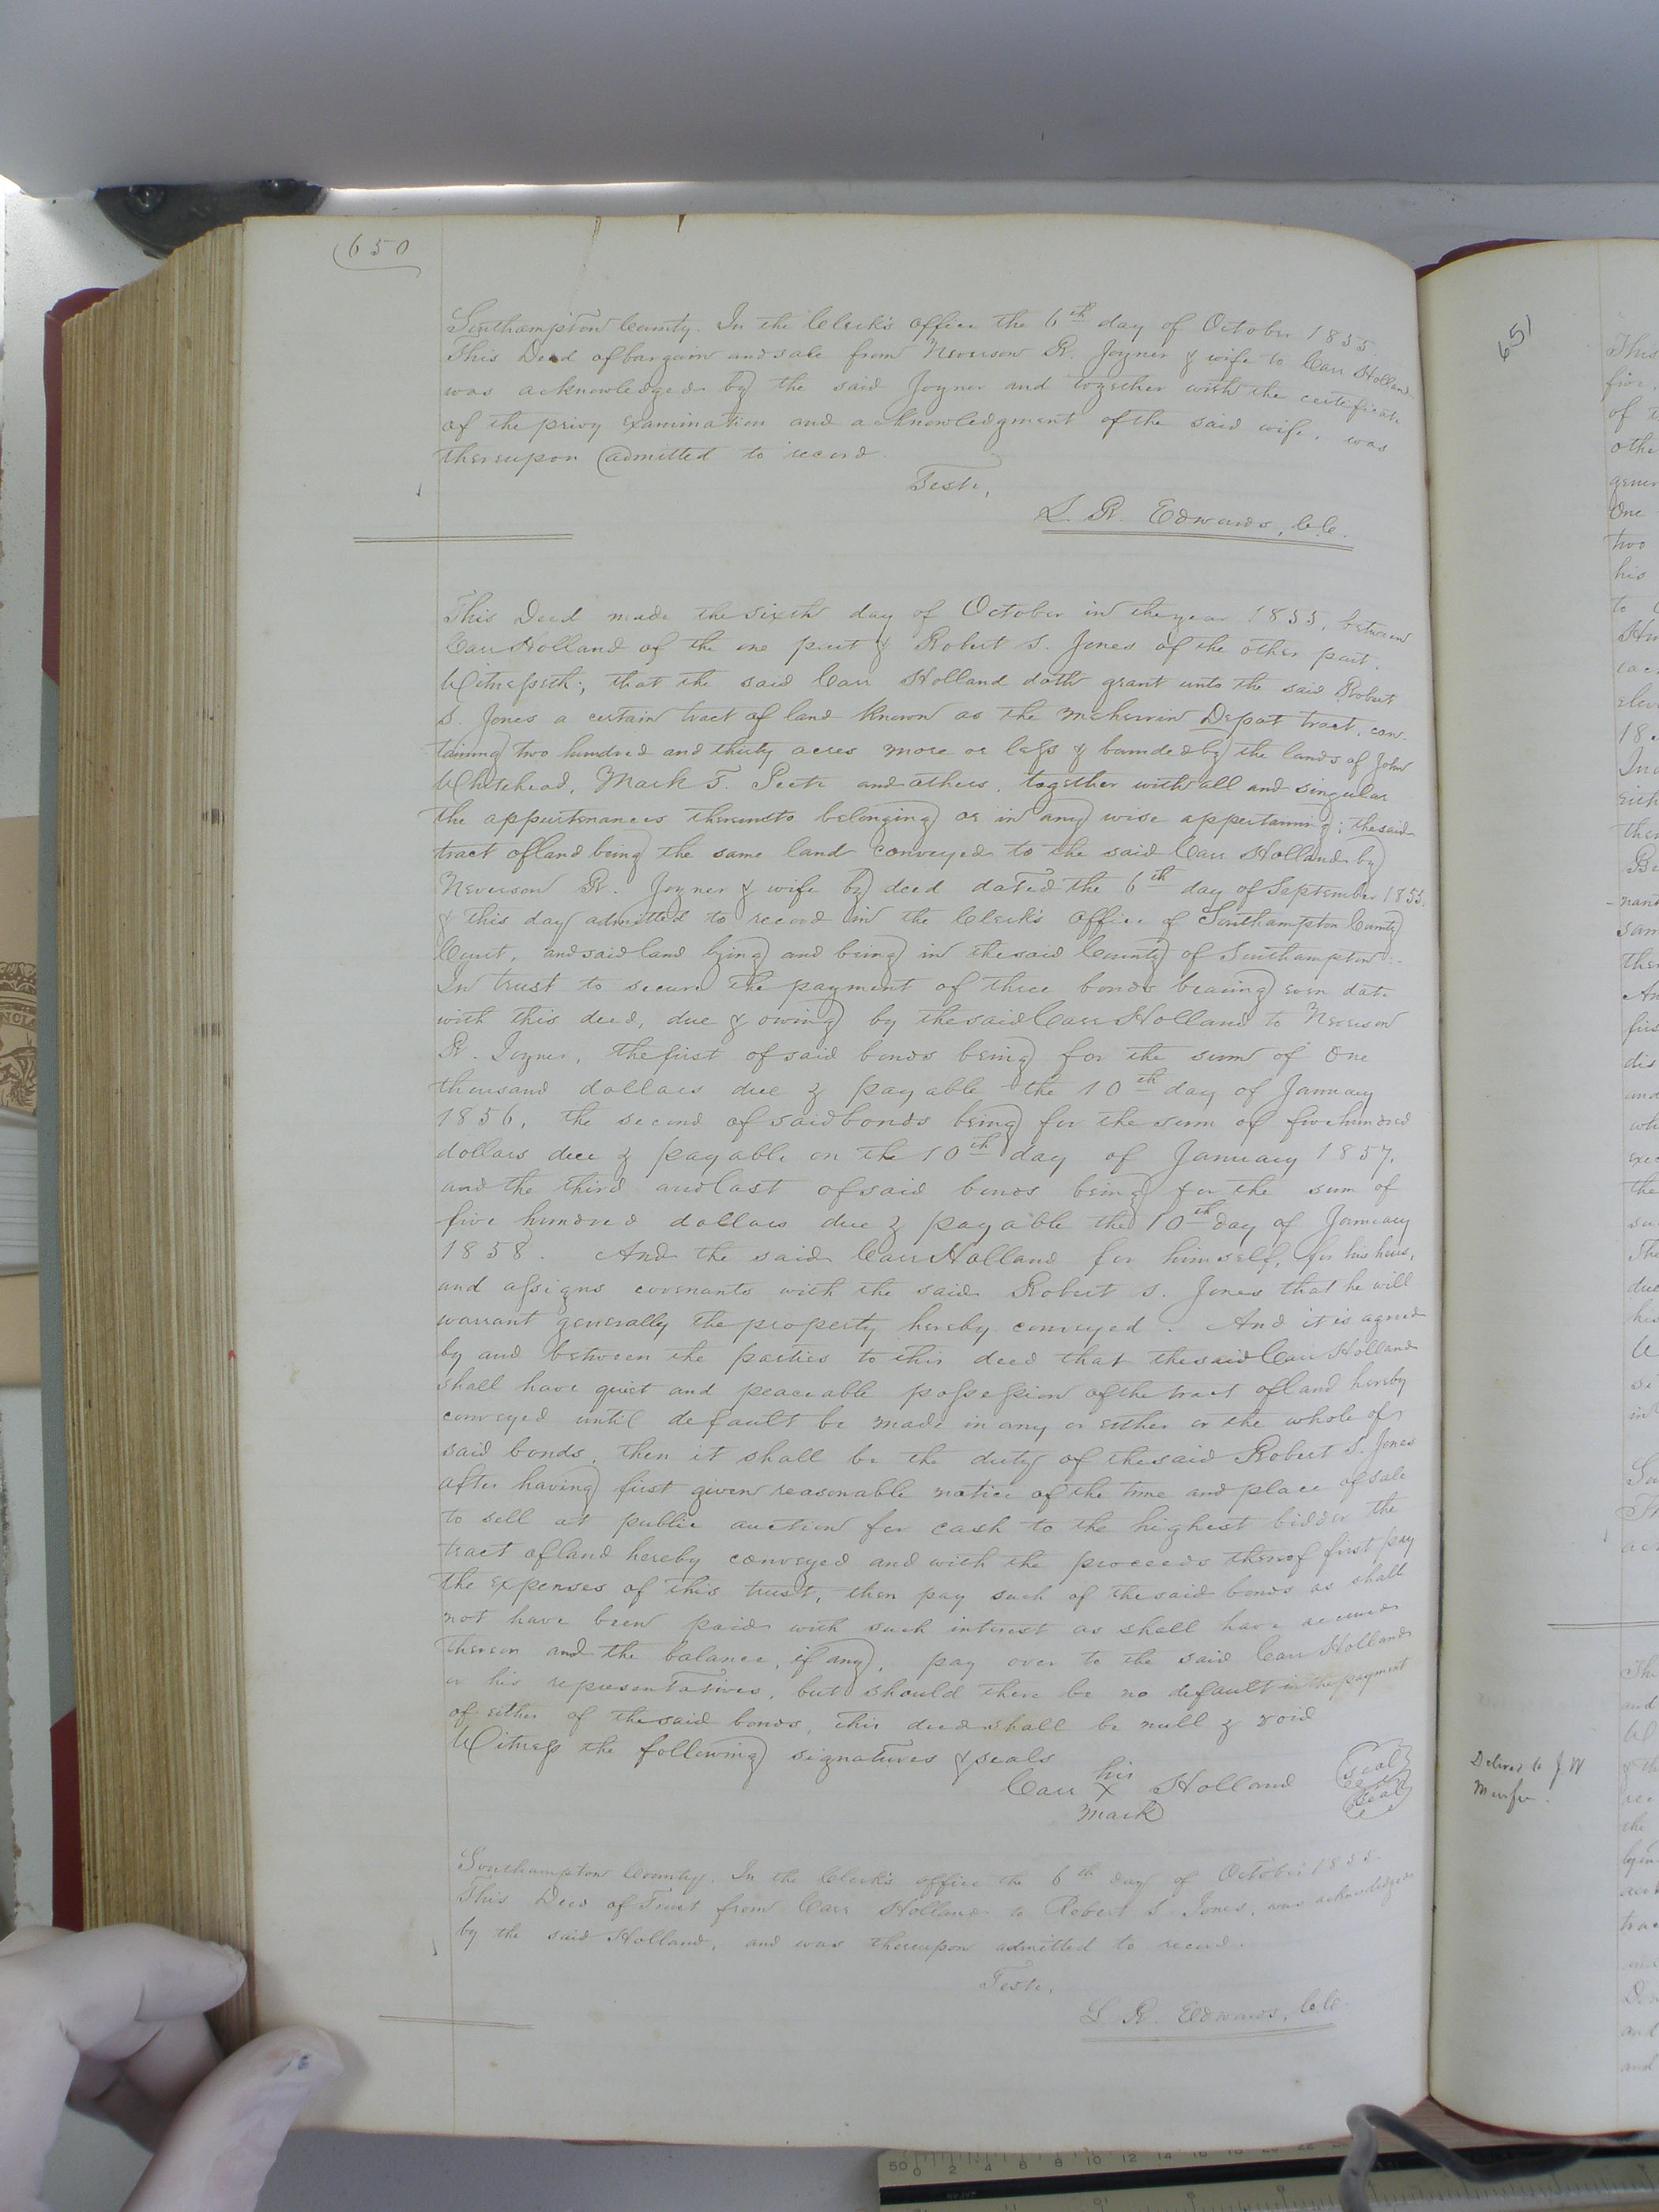 650
Southampton County. In the Clerk's office the 6th day of October 1855.
This Deed of bargain and sale from Neverson R. Joyner & wife to Carr Holland
was acknowledged by the said Joyner and together with the certificate
of the privy examination and acknowledgment of the said wife, was
thereupon admitted to record.
Teste,
L. R. Edwards, C.C.
This Deed made the sixth day of October in the year 1855, between
Carr Holland of the one part & Robert S. Jones of the other part.
Witnesseth; that the said Carr Holland doth grant unto the said Robert
S. Jones a certain tract of land known as the Meherrin Depot tract, con-
taining two hundred and thirty acres more or less & bounded by the lands of John
Whitehead, Mark T. Peete and others, together with all and singular
the appurtenances thereunto belonging or in any wise appertaining; the said
tract of land being the same land conveyed to the said Carr Holland by
Neverson R. Joyner & wife by deed dated the 6th day of September 1855,
& this day admitted to record in the Clerk's Office of Southampton County
Court, and said land lying and being in the said County of Southampton:-
In trust to secure the payment of three bonds bearing even date
with this deed, due & owing by the said Carr Holland to Neverson
R. Joyner, the first of said bonds being for the sum of One
thousand dollars due & payable the 10th day of January
1856, the second of said bonds being for the sum of five hundred
dollars due & payable on the 10th day of January 1857,
and the third and last of said bonds being for the sum of
five hundred dollars due & payable the 10th day of January
1858. And the said Carr Holland for himself, for his heirs,
and assigns covenants with the said Robert S. Jones that he will
warrant generally the property hereby conveyed. And it is agreed
by and between the parties to this deed that the said Carr Holland
shall have quiet and peaceable possession of the tract of land hereby
conveyed until default be made in any or either or the whole of
said bonds, then it shall be the duty of the said Robert S. Jones
after having first given reasonable notice of the time and place of sale
to sell at public auction for cash to the highest bidder the
tract of land hereby conveyed and with the proceeds thereof first pay
the expenses of this trust, then pay such of the said bonds as shall
not have been paid with such interest as shall have accrued
thereon and the balance, if any, pay over to the said Carr Holland
or his representatives, but should there be no default in the payment
of either of the said bonds, this deed shall be null & void
Witness the following signatures & seals
his
Carr X Holland seal
mark seal
Southampton County. In the Clerk's office the 6th day of October 1855.
This Deed of Trust from Carr Holland to Robert S. Jones, was acknowledged
by the said Holland, and was thereupon admitted to record.
Teste,
L. R. Edwards, C.C.
651
This
five
of
othe
One
two
his
to
18
Delivered to J. W
50
0 2 4 6 8 10 12 14 16 18 20 22